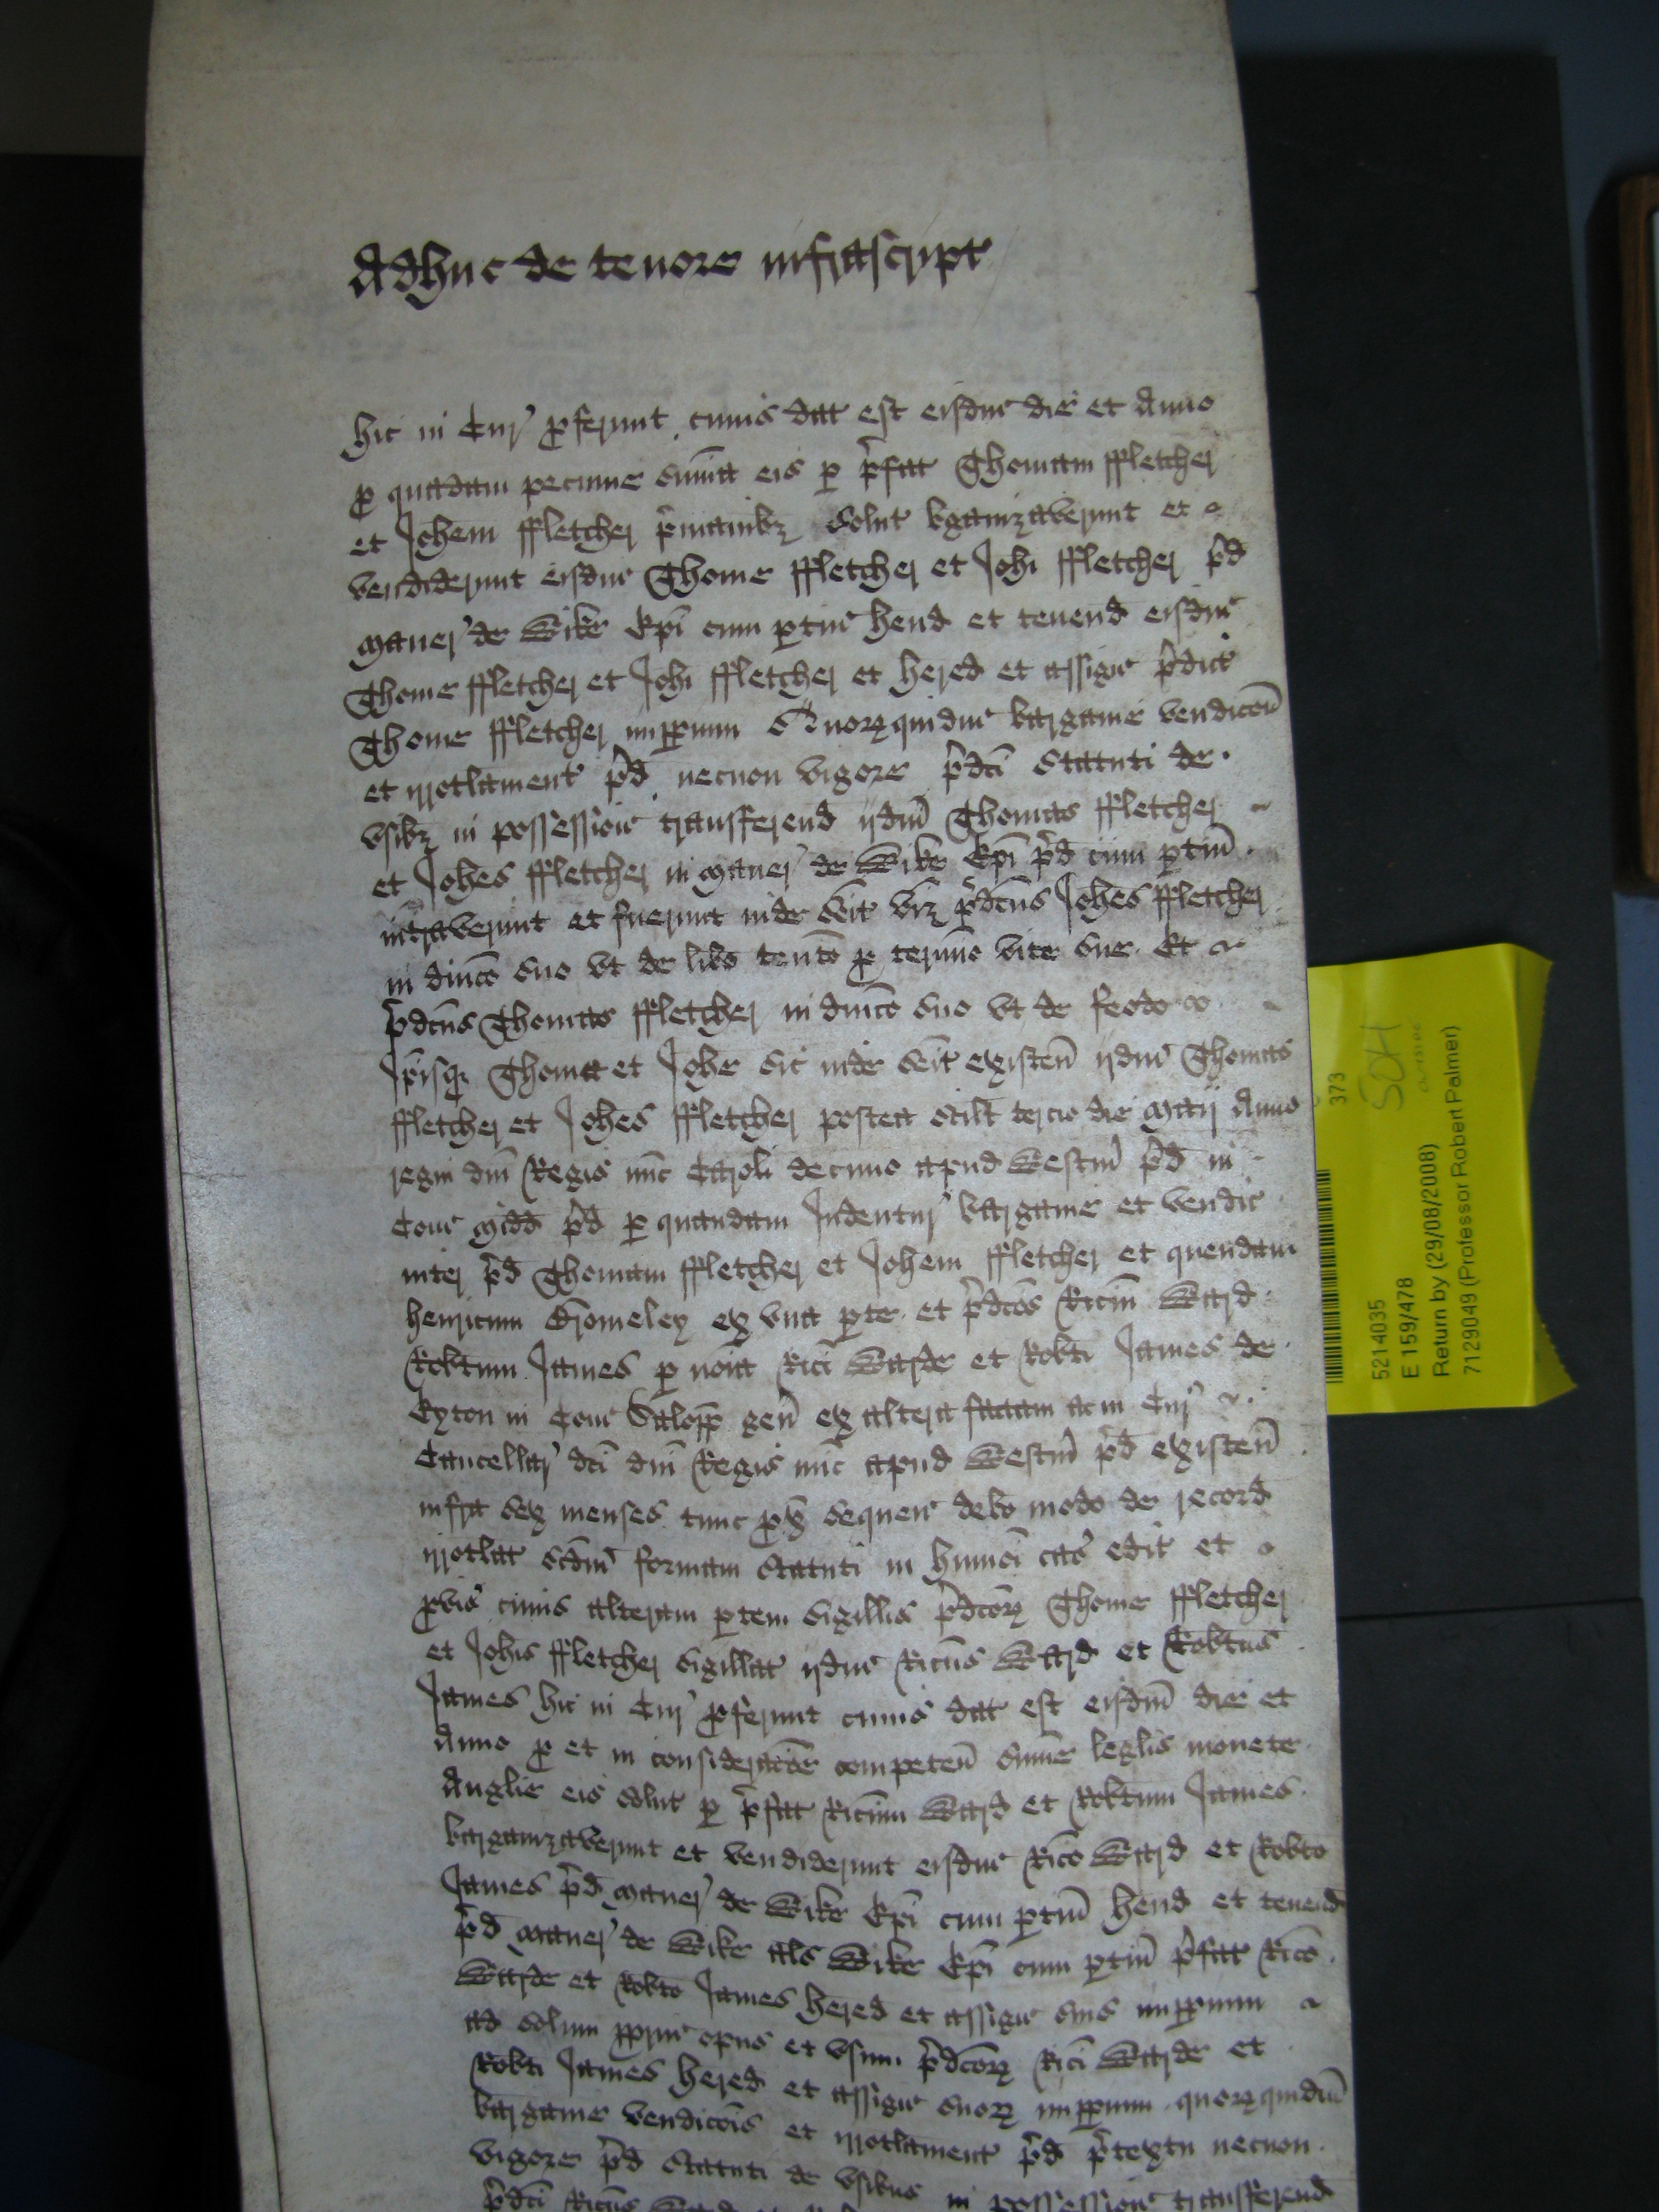 Adhuc de tenore infrascript
hic in Cur pferunt cuius dat est eisdm die et Anno
p quadam pecunie summa eis p prfat Thomam ffletcher
et Johem ffletcher primanibz solut bganizaverunt et
vendiderunt eisdm Thome ffletcher et Johi ffletcher prd
Maner de Wike Epi cum ptin hend et tenend eisdm
Thome ffletcher et Johi ffletcher et hered et assign prdict
Thome ffletcher imppum Quorquidm barganie vendicon
et irrotlament prd necnon vigore prdci Statuti de
vsibz in possession transferend ijdm Thomas ffletcher
et Johes ffletcher in Maner de Wike Epi prd cum ptin
intraverunt et fuerunt inde seit vizt prdcus Johes ffletcher
in dnico suo vt de libo tento p termino vite sue Et
prdcus Thomas ffletcher in dnico suo vt de feodo
Ipisq Thoma et Johe sic inde seit existen ijdm Thomas
ffletcher et Johes ffletcher postea scilt tercio die Maij Anno
regni dni Regis nunc Caroli decimo apud Westm prd in
Com Midd prd p quandam Indentur barganie et vendic
inter prd Thomam ffletcher et Johem ffletcher et quendam
henricum Bromeley ex vna pte et prdcos Ricum Ward
Robtum James p noia Rici Warde et Robti James de
Eyton in Com Salopp gen ex altera factam ac in Cur
Cancellar dci dni Regis nunc apud Westm prd existen
infra sex menses tunc px sequen debo modo de record
irrotlat scdm formam Statuti in humoi cas edit et
pvis cuius alteram ptem sigillis prdcorz Thome ffletcher
et Johis ffletcher sigillat ijdm Ricus Ward et Robtus
James hic in Cur pferunt cuius dat est eisdm die et
Anno p et in consideracoe competen summe leglis monete
Anglie eis solut p prfat Ricum Ward et Robtum James
barganizaverunt et vendiderunt eisdm Rico Ward et Robto
James prd Maner de Wike Epi cum ptin hend et tenend
prd Maner de Wike als Wike Epi cum ptin prfat Rico
Warde et Robto James hered et assign suis imppum
ad solum ppriu opus et vsum prdcorz Rici Warde et
Robti James hered et assign suorz imppum quorzquidm
barganie vendicois et irrotlament prd prtextu necnon
vigore prd Statuti de vsibus in possession transferend
prdci Ricus Ward et
373
SOH
5214035
E 159/478
Return by (29/08/2008)
7129049 (Professor Robert Palmer)